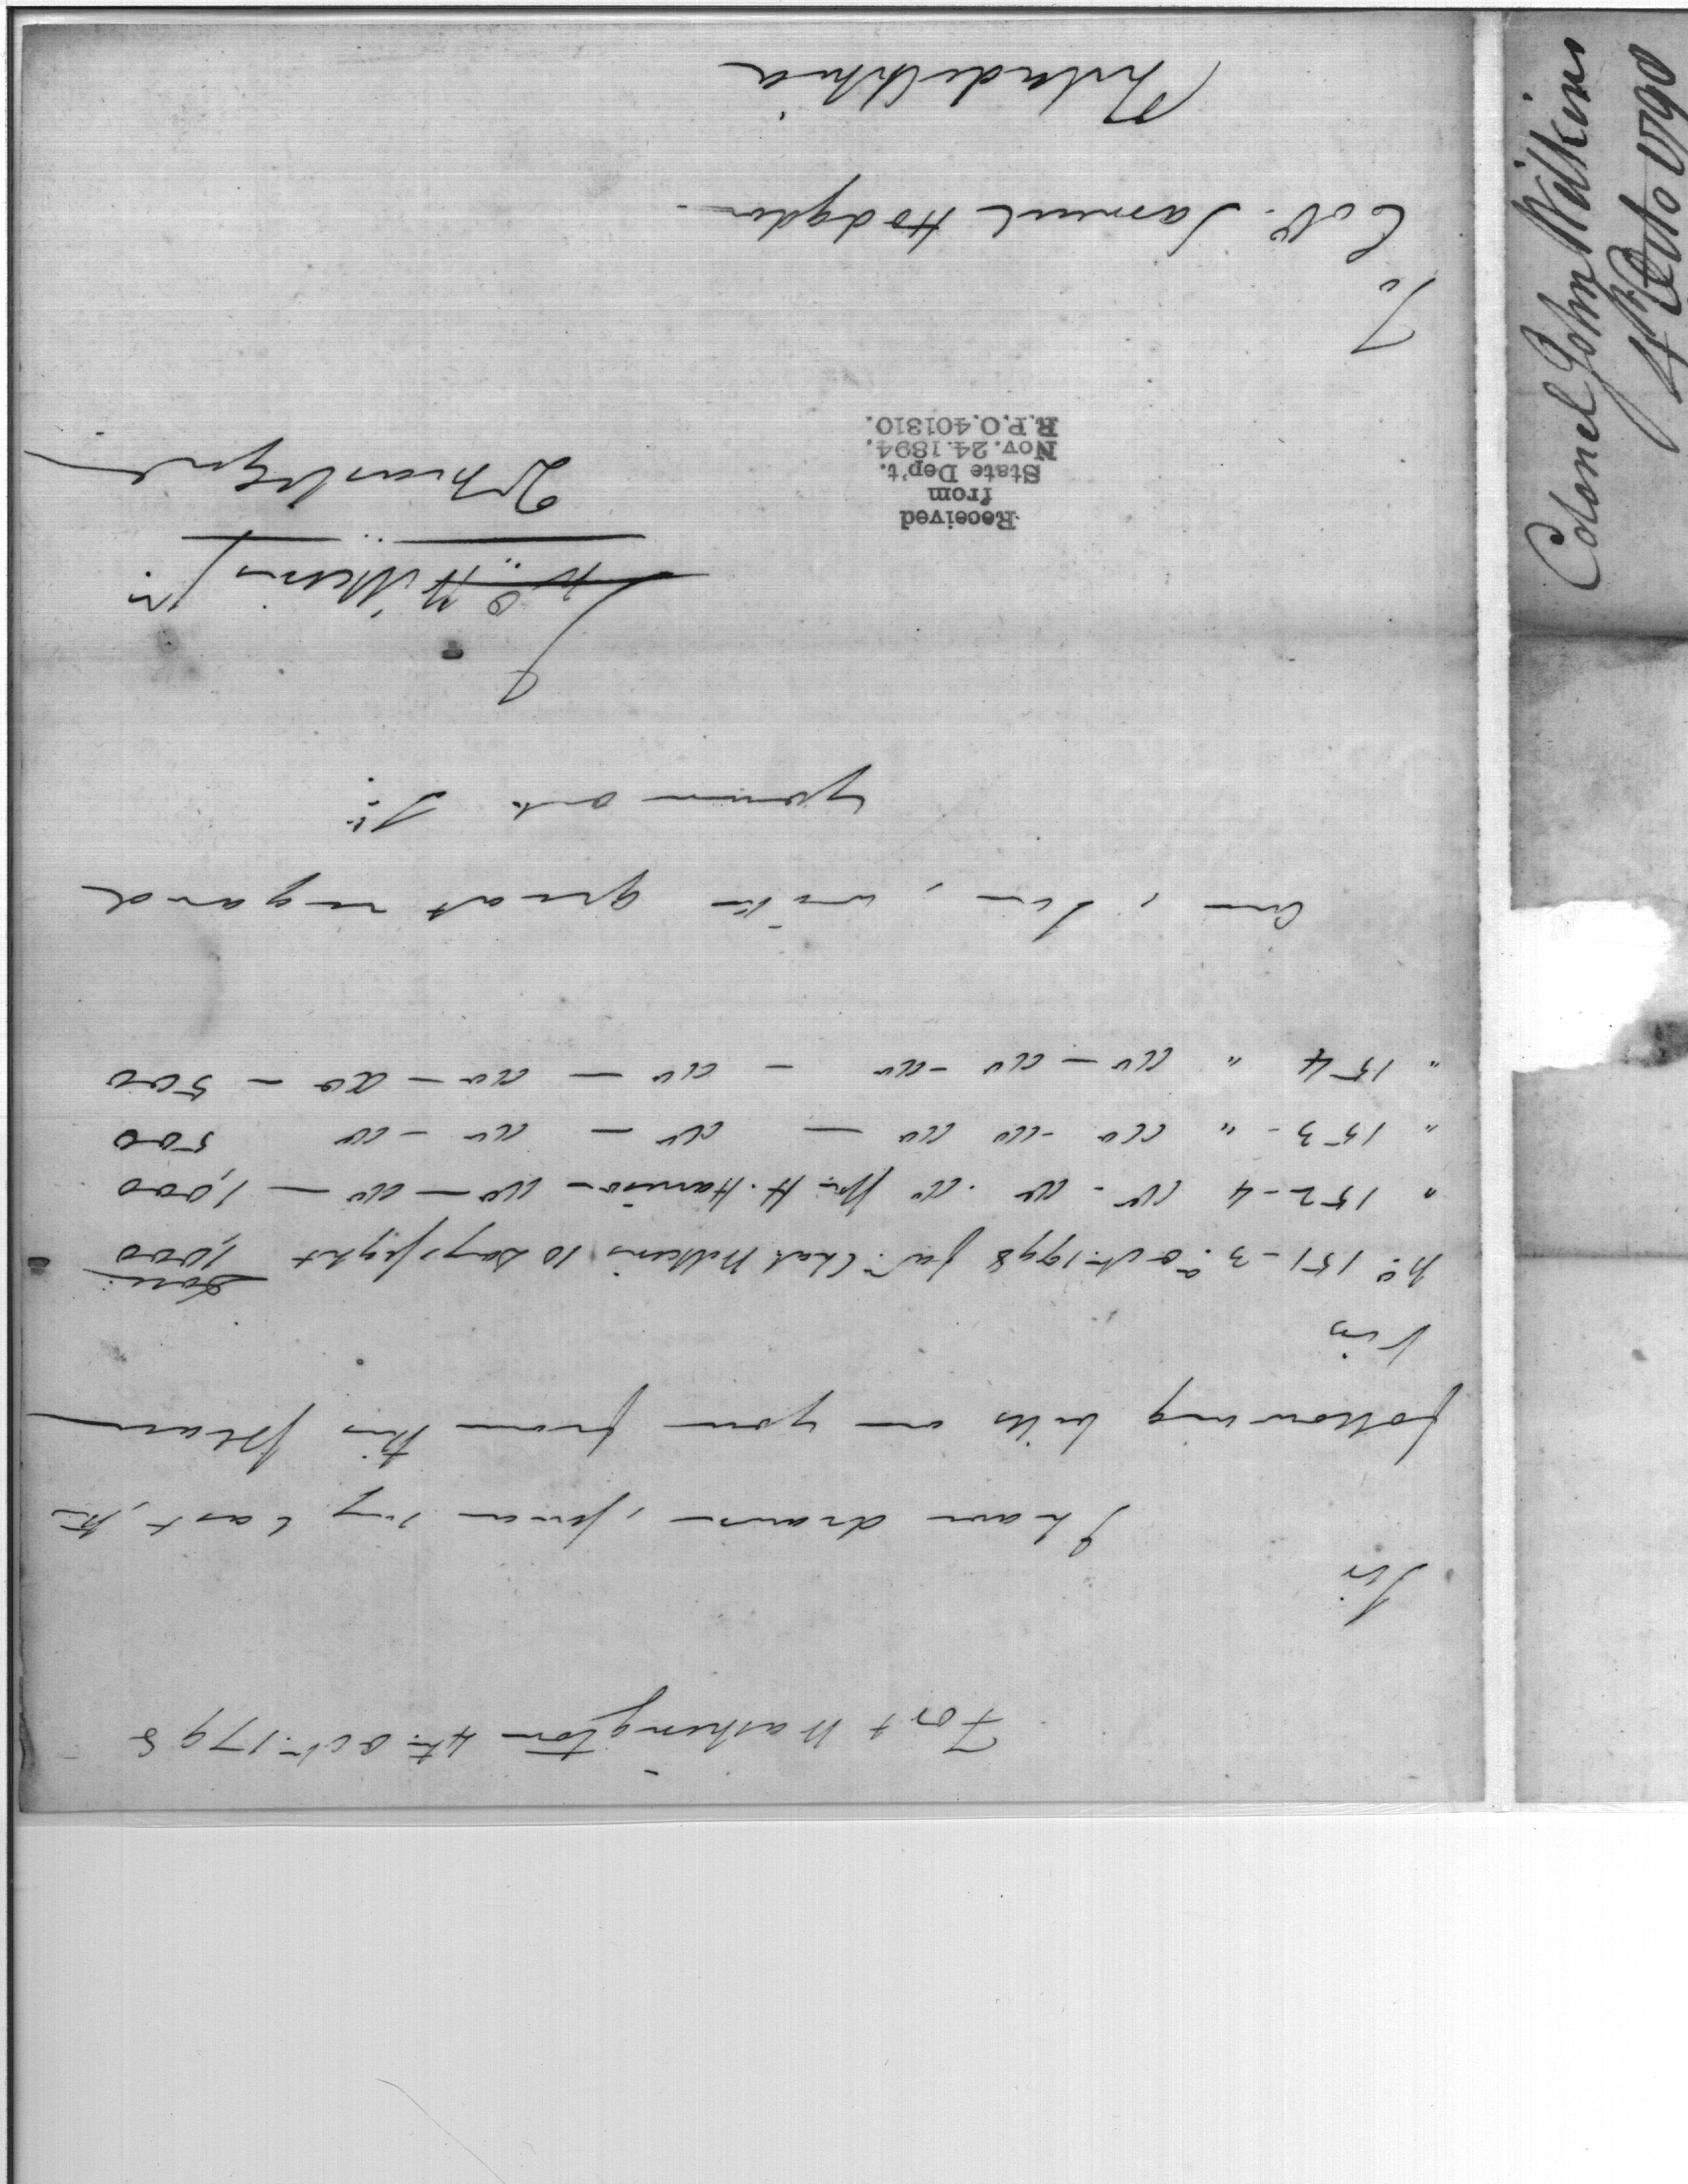 Fort Washington 4th Octr. 1798
Sir
I have drawn, since my last, the
following bills on you from this place
Viz
No. 151 - 3d. Octr. 1798 favr. Chas. Wilkins 10 Days sight 1,000
" 152 - 4 do - do - do H. Harrison - do - do - 1,000
" 153 - " do - do do - do - do - do 500
" 154 " do - do - do - do - do - do - 500
am, Sir, with great regard
your ob. St.
Jno. Wilkins Jr.
Qr Master Genl
Received
from
State Dep't.
Nov. 24. 1894.
R.P.O. 401310.
To
Col. Samuel Hodgdon
Philadelphia
Colonel John Wilkins
4th Octo 1798